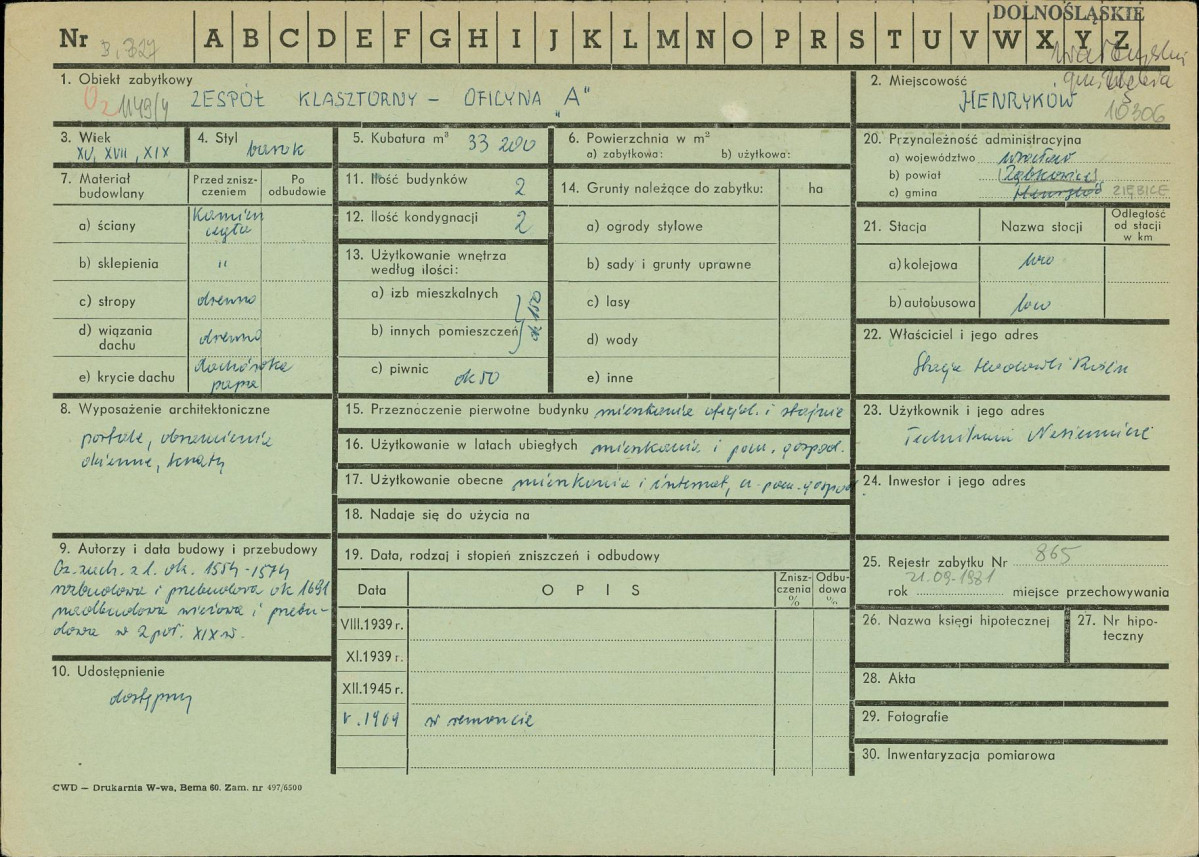 DOLNOŚLĄSKIE
Nr A B C D E F G H I J K L M N O P R S T U V W X Y Z
1. Obiekt zabytkowy
1149/4 ZESPÓŁ KLASZTORNY – OFICYNA „A"
2. Miejscowość
HENRYKÓW
10306
3. Wiek
XV, XVII, XIX
4. Styl
barok
5. Kubatura m³ 33 200
6. Powierzchnia w m²
a) zabytkowa: b) użytkowa:
7. Materiał budowlany
Przed zniszczeniem
Po odbudowie
a) ściany
kamień
cegła
b) sklepienia "
c) stropy drewno
d) wiązania dachu drewno
e) krycie dachu
dachówka
papa
8. Wyposażenie architektoniczne
portale, obramienia
okienne, kraty
9. Autorzy i data budowy i przebudowy
Oz. zach. z l. ok. 1554-1574
rozbudowa i przebudowa ok 1691
nadbudowa wieżowa i przebu-
dowa w 2 poł. XIX w.
10. Udostępnienie
dostępny
11. Ilość budynków 2
12. Ilość kondygnacji 2
13. Użytkowanie wnętrza
według ilości:
a) izb mieszkalnych
b) innych pomieszczeń
ok 150
c) piwnic ok 50
14. Grunty należące do zabytku: ha
a) ogrody stylowe
b) sady i grunty uprawne
c) lasy
d) wody
e) inne
15. Przeznaczenie pierwotne budynku mieszkania oficjal. i stajnie
16. Użytkowanie w latach ubiegłych mieszkania i pom. gospod.
17. Użytkowanie obecne mieszkania i internat, pom. gospod
18. Nadaje się do użycia na
19. Data, rodzaj i stopień zniszczeń i odbudowy
Data
O P I S
Zniszczenia %
Odbudowa %
VIII.1939 r.
XI.1939 r.
XII.1945 r.
V. 1964 w remoncie
20. Przynależność administracyjna
a) województwo wrocław
b) powiat Ząbkowice
c) gmina Henryków ZIĘBICE
21. Stacja
Nazwa stacji
Odległość od stacji w km
a) kolejowa
b) autobusowa
22. Właściciel i jego adres
Stacja Hodowli Roślin
23. Użytkownik i jego adres
Technikum Nasiennicze
24. Inwestor i jego adres
25. Rejestr zabytku Nr 865
21.09.1981
rok miejsce przechowywania
26. Nazwa księgi hipotecznej
27. Nr hipoteczny
28. Akta
29. Fotografie
30. Inwentaryzacja pomiarowa
CWD – Drukarnia W-wa, Bema 60. Zam. nr 497/6500